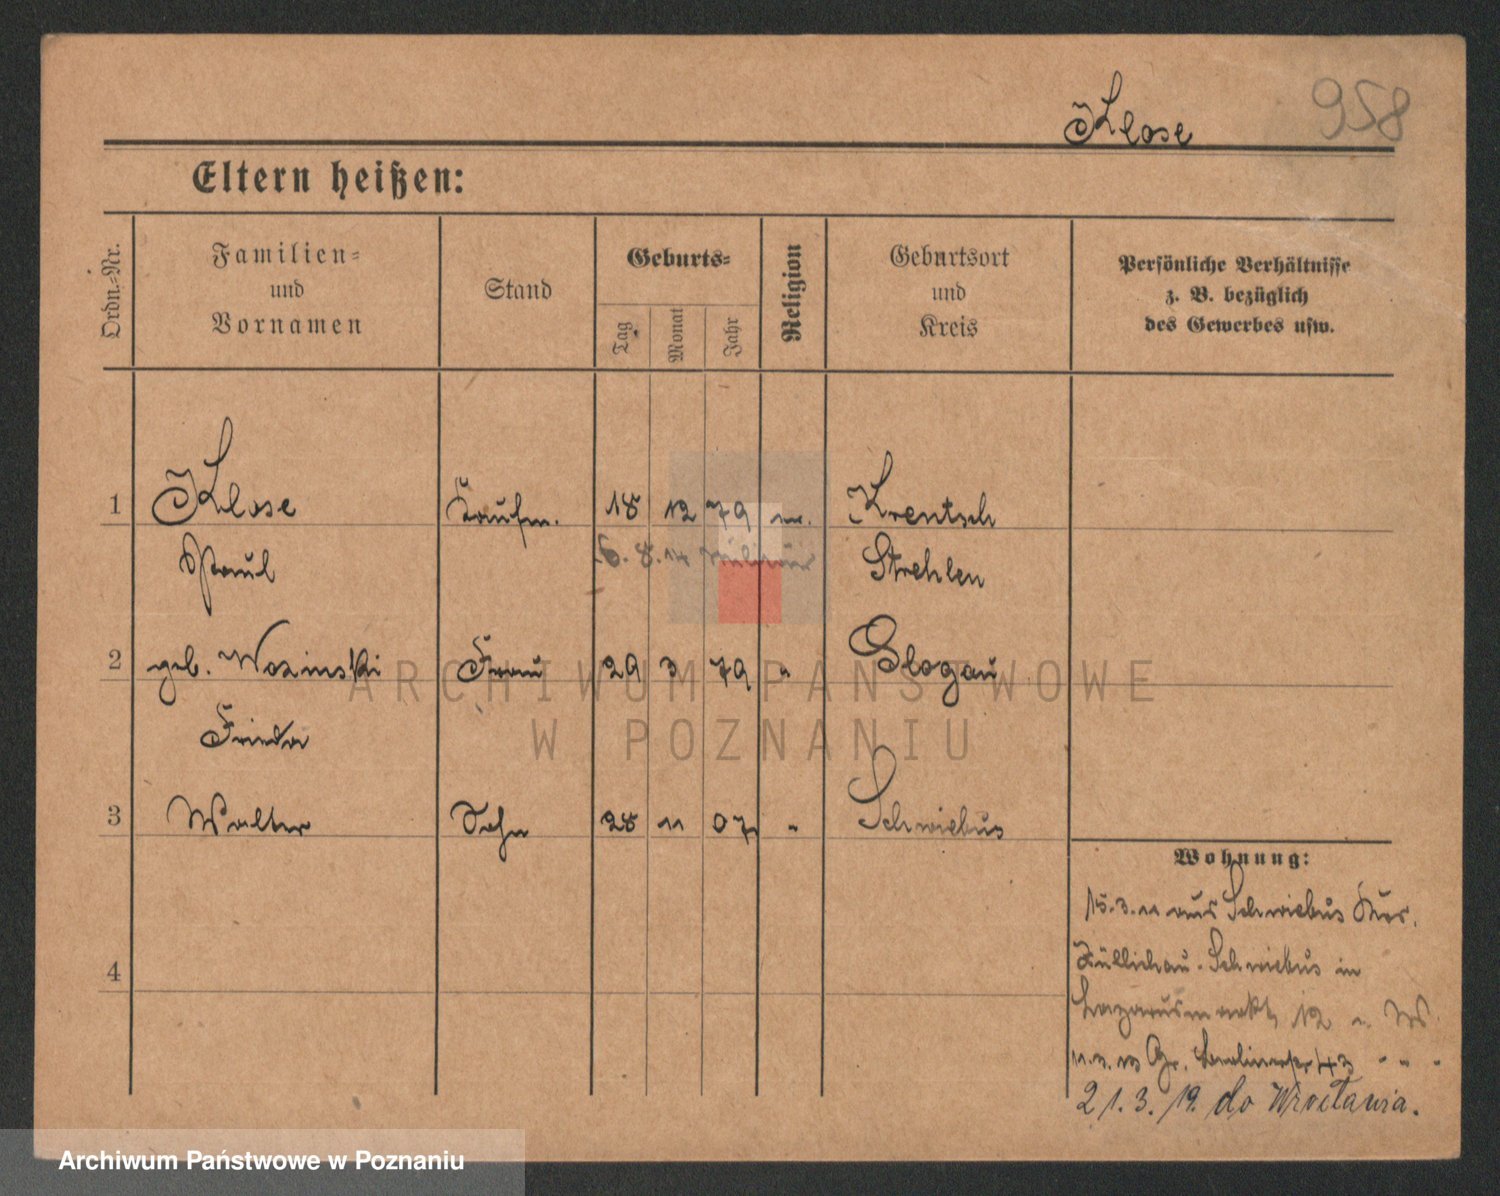 Klose 958
Eltern heißen:
Ordn.-Nr.
Familien-
und
Vornamen
Stand
Geburts-
Tag
Monat
Jahr
Religion
Geburtsort
und
Kreis
Persönliche Verhältnisse
z. B. bezüglich
des Gewerbes usw.
1 Klose Kaufm. 18 12 79 Krentsch
Paul 6. 8. 14 Militär Strehlen
2 geb. Wozinski Frau 29 3 79 " Glogau
Frieda
3 Walter Sohn 28 11 07 " Schwiebus
Wohnung:
15. 3. 11 aus Schwiebus
Züllichau-Schwiebus in
4
Lazarusmarkt 12
11. 3. 13 Gr. Berlinerstr 43 " " "
21. 3. 19. do Wrocławia.
ARCHIWUM PAŃSTWOWE
W POZNANIU
Archiwum Państwowe w Poznaniu